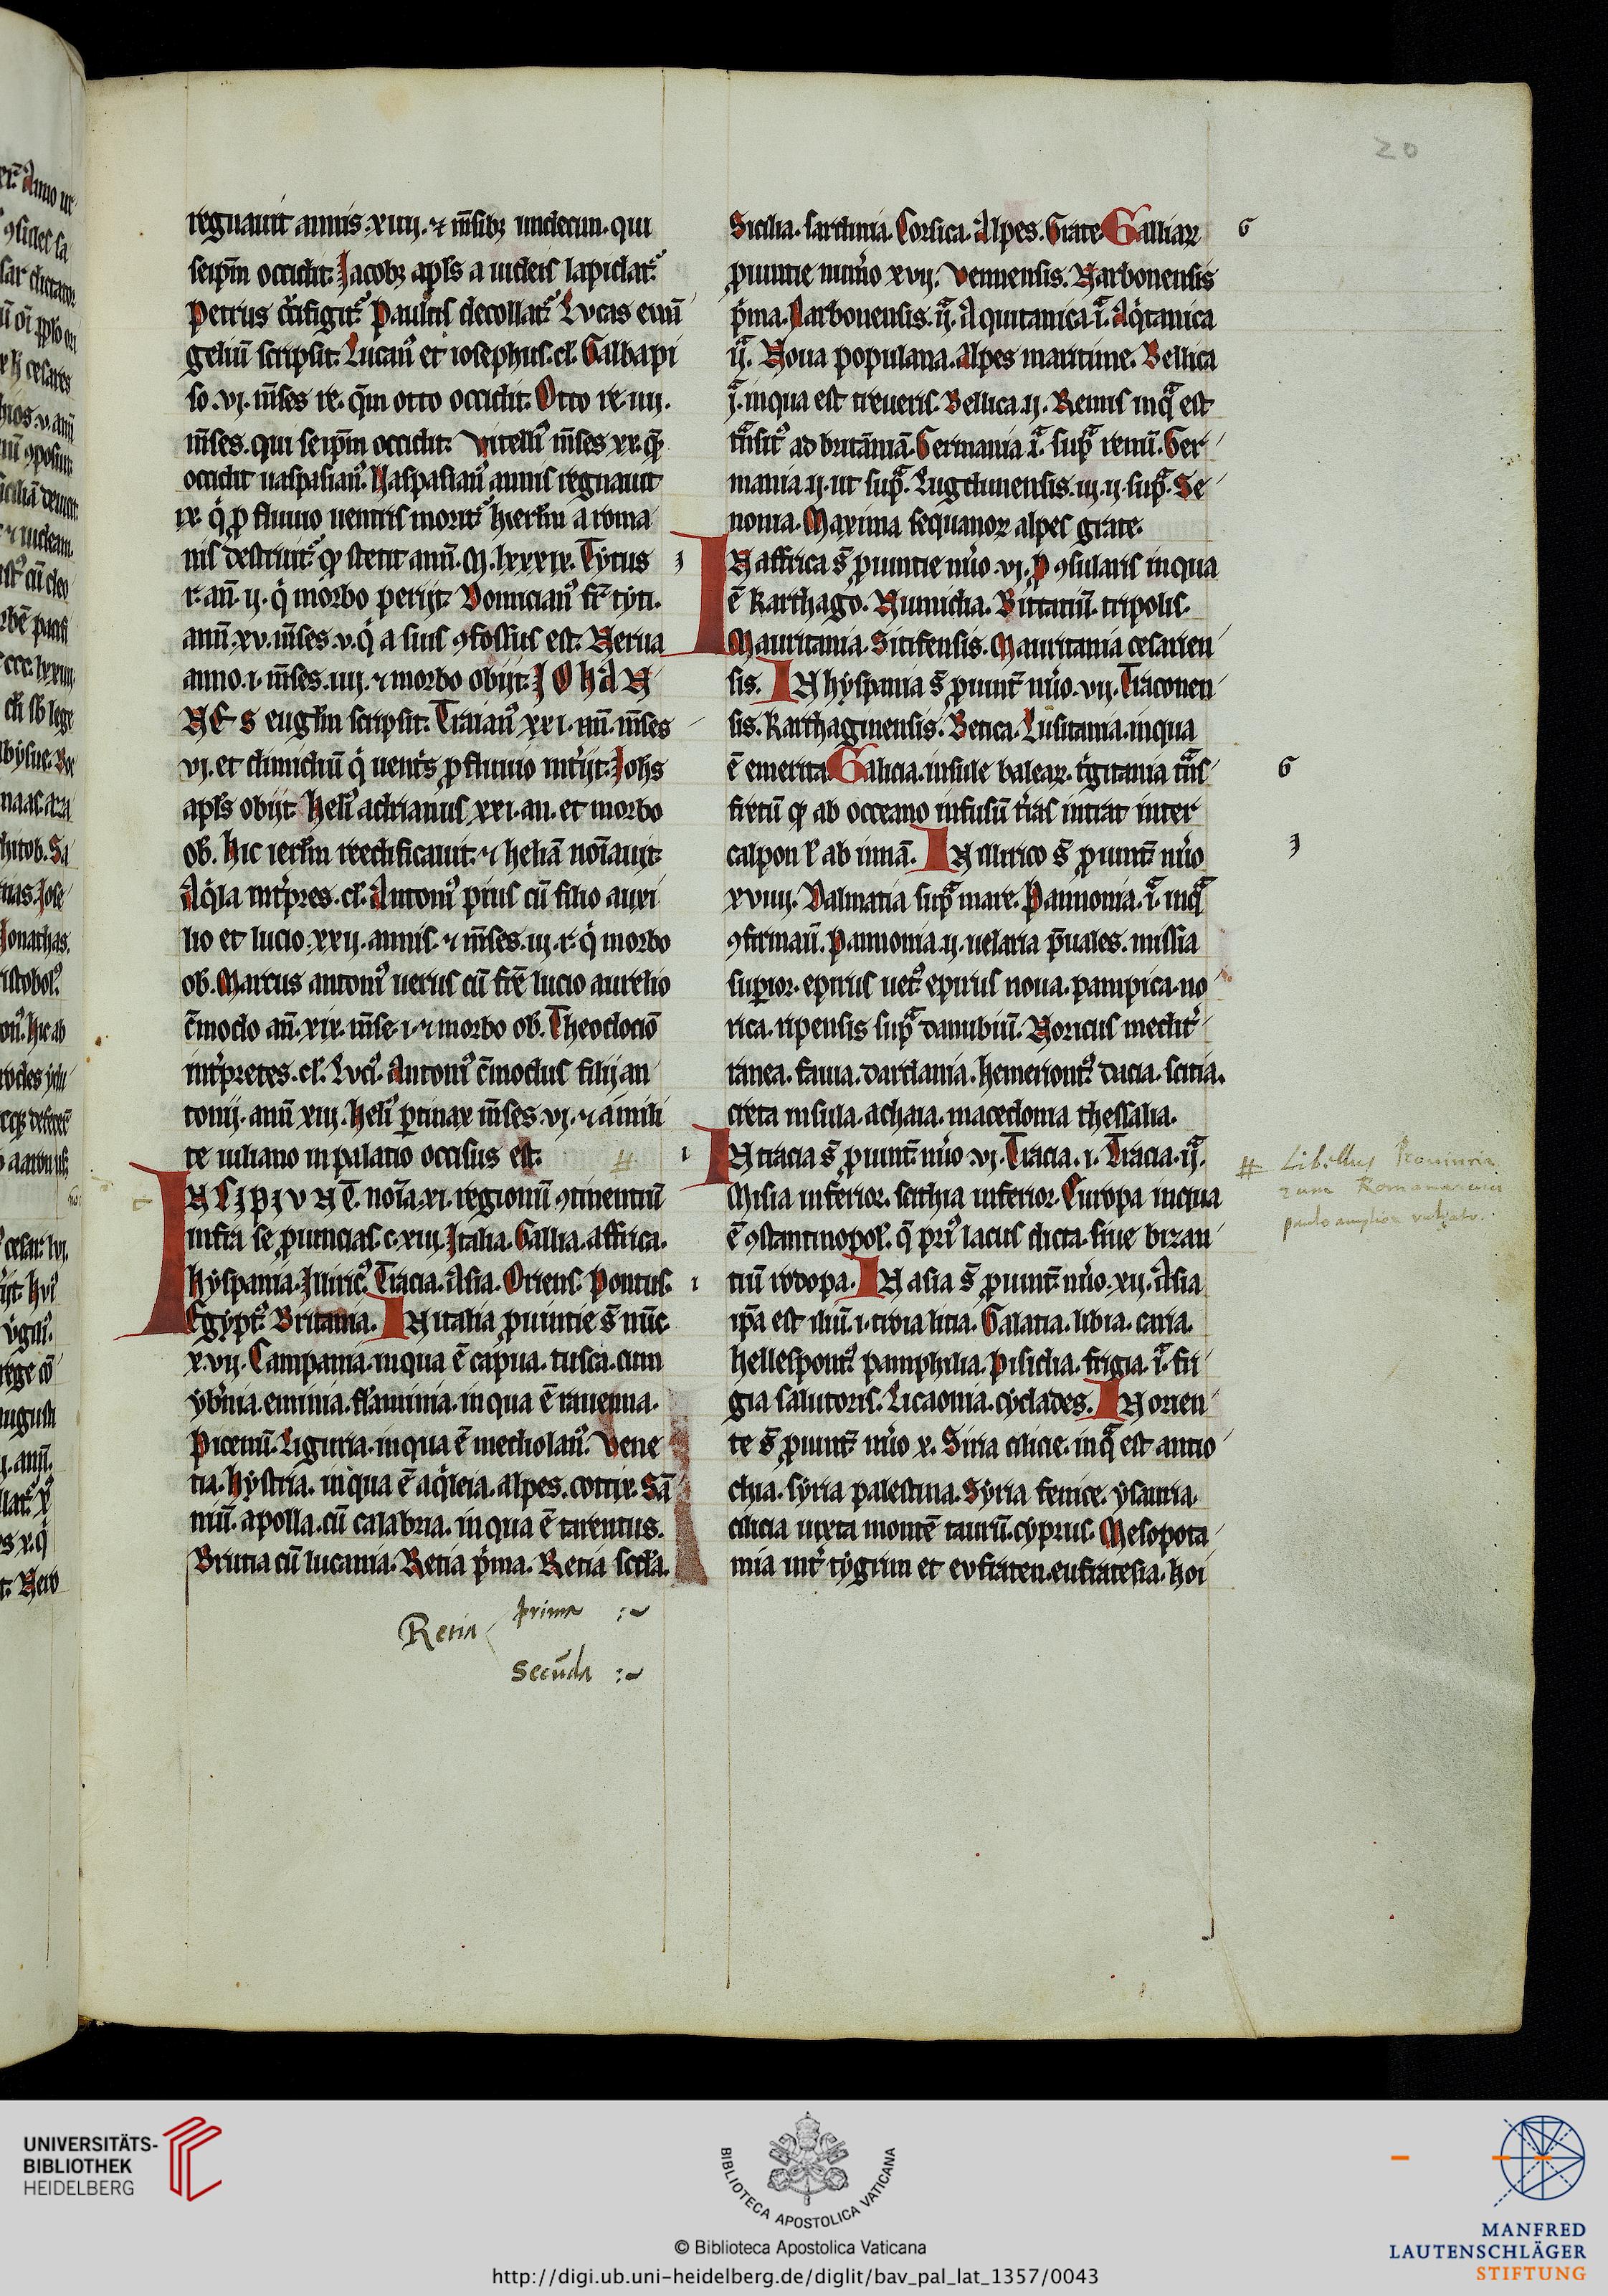 20
regnauit annis. xiiij. ⁊ m̄sibꝫ undecim. qui
seip̄m occidit. Jacobꝫ apl̄s a iudeis lapidat᷑.
Petrus c̄cifigit᷑. Paulus decollat᷑. Lvcas ewā
geliū scripsit. Lucanꝰ et iosephus. cl̄. Galba pi
so .vj. m̄ses re. q̄m otto occidit. Otto re. iiij.
m̄ses. qui seip̄m occidit. Vitelliꝰ m̄ses xx. q̄
occidit uaspasianꝰ. Uaspasianꝰ annis regnauit
ix. q̇ ꝓ fluuio uentris morit᷑. hierl̄m a roma
nis destruit᷑. qꝫ stetit ann̄. M. lxxxix. Tytus
r. an̄. ij. q̇ morbo perijt. Domicianꝰ fr̄ tyti.
ann̄. xv. m̄ses. v. q̇ a suis ꝯfossus est. Nerua
anno. i. m̄ses. iiij. ⁊ morbo obijt. JOHAN
NES eugl̄m scripsit. Traianꝰ xxi. ann̄. m̄ses
vj. et dimidiū q̇ uent̓s ꝓfluuio int̓ijt. Johs
apl̄s obijt. Heliꝰ adrianus xxi. an. et morbo
ob. Hic ierl̄m reedificauit. ⁊ heliā noīauit.
Aq̇la int̓pres. cl̄. Antoniꝰ pius cū filio auri
lio et lucio. xxij. annis. ⁊ m̄ses. iij. r. q̇ morbo
ob. Marcus antoniꝰ uerus cū fr̄e lucio aurelio
c̄modo an̄. xix. m̄se. i. ⁊ morbo ob. Theodociō
int̓pretes. cl̄. Lvciꝰ. Antoniꝰ c̄modus filij an
tonij. ann̄ xiij. Heliꝰ ꝑtinax m̄ses. vj. ⁊ a imili
te iuliano in palatio occisus est.
INCIPIVNT̄. noīa. xi. regionū ꝯtinentiū
infra se ꝓuincias. c. xiij. Italia. Gallia. affrica.
hyspania. Jlliricꝰ. Tracia. Asia. Oriens. Pontus.
Egyptꝰ. Britania. IN italia ꝓuintie s̄ nūc.
x. vij. Campania. inqua ē capua. tusca. cum
yb̓nia. emmia. flāminia. in qua ē rauenna.
Picenū. Liguria. in qua ē mediolanꝰ. Vene
tia. hystria. in qua ē aq̇leia. alpes. cottie. Sā
niū. apolla. cū calabria. in qua ē tarentus.
Brutia cū lucania. Retia p̓ma. Retia scd̄a.
Retia prima :~
Secūda :~
Sicilia. sardinia. Corsica. Alpes. Grate. Galliaꝝ
ꝓuintie num̓o xvij. Vennensis. Narbonensis
p̓ma. Narbonensis. ij. Aquitanica. i. Aq̇tanica
ij. Noua populana. Alpes maritime. Bellica
j. inqua est treueris. Bellica. ij. Remis inq̄ est
tn̄sitꝰ ad britān̄iā. Germania i. sup̄ renū. Ger
mania. ij. ut sup̄. Lugdunensis. iij. ij. sup̄. Se
nonia. Maxima sequanoꝝ alpes grate.
IN affrica s̄ ꝓuintie nūo. vj. Pꝯsularis inqua
ē Karthago. Numidia. Bizatiū. tripolis.
Mauritania. Sitifensis. Mauritania cesarien
sis. IN hyspania s̄ ꝓuint̄ nūo. vij. Traconen
sis. Karthaginensis. Betica. Lusitania. inqua
ē emerita. Galicia. insule balear. tigitania tn̄s
fretū qꝫ ab occeano infusū t̓ras intrat inter
calpon ⁊ ab innā. IN illirico s̄ ꝓuint̄ nūo
xviiij. Dalmatia sup̄ mare. Pannonia. i. inq̄
ꝯfirmaū. Pannonia. ij. uelaria p̄uales. missia
suꝑior. epirus uetꝰ. epirus noua. pampica. no
rica. ripensis sup̄ danubiū. Noricus medit̓
ranea. fauia. dardania. hemeriontꝰ. dacia. scitia.
creta insula. achaia. macedonia thessalia.
IN tracia s̄ ꝓuint̄ nūo. vj. Tracia. i. Tracia. ij.
Misia inferior. scithia inferior. Europa inqua
ē ꝯstantinopol̄. q̄ pri̓ lacus dicta. siue bizan
tiū rodopa. IN asia s̄ ꝓuint̄ nūo. xij. Asia
ip̄a est iliū. i. troia litia. Galatia. libia. caria.
hellespontꝰ. pamphilia. Pisidia. frigia. i. fri
gia salutoris. Licaonia. cyclades. IN orien
te s̄ ꝓuint̄ nūo x. Siria cilicie. inq̄ est antio
chia. syria palestina. Syria fenice. ysauria.
cilicia iuxta montē taurū. cyprus. Mesopota
mia int̓ tygrim et evfraten. eufratesia. hoi
G
G
# Libellus Provincia
rum Romanarum
paulo amplior vulgato.
UNIVERSITÄTS-
BIBLIOTHEK
HEIDELBERG
BIBLIOTECA APOSTOLICA VATICANA
© Biblioteca Apostolica Vaticana
http://digi.ub.uni-heidelberg.de/diglit/bav_pal_lat_1357/0043
MANFRED
LAUTENSCHLÄGER
STIFTUNG